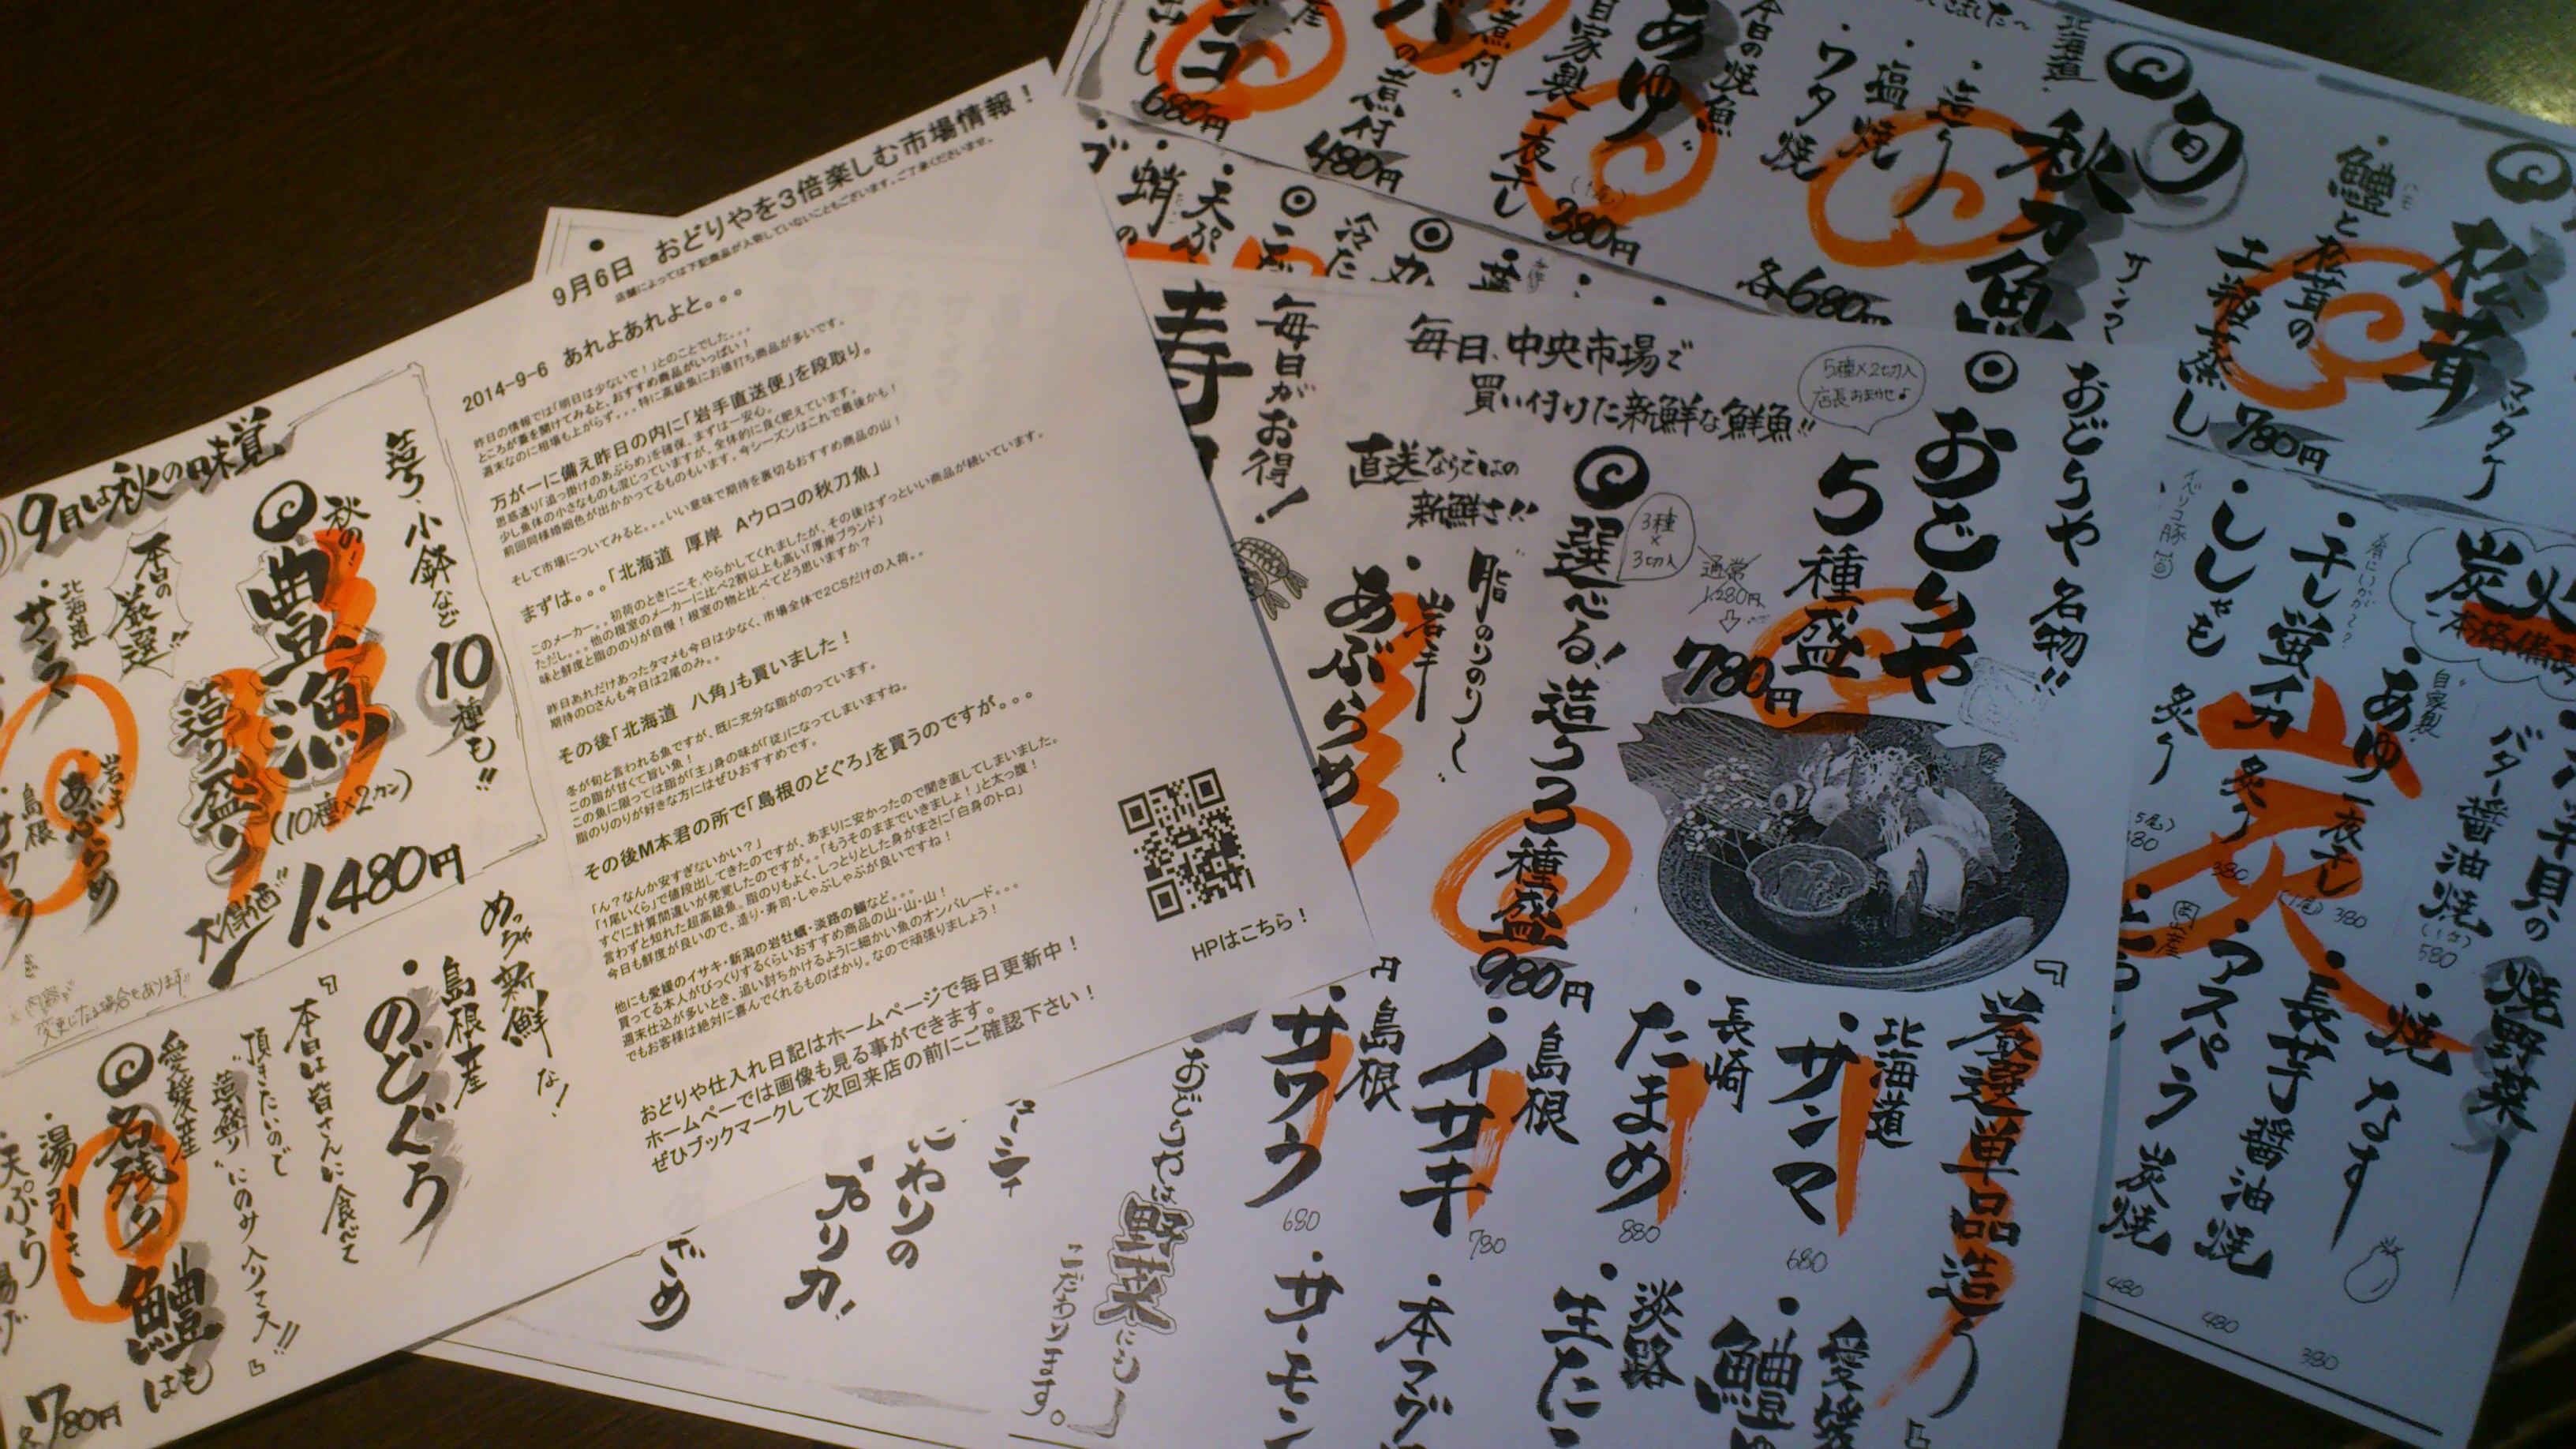 9月は秋の味覚
造り・小鉢など
10種も!!
秋の!
豊漁
造り盛り
(10種×2カン)
1.480円
大得価!!
本日の
厳選!!
北海道
・サンマ
岩手
・あぶらめ
島根
・サワラ
※内容が
変更になる場合もあります!!
めっちゃ新鮮な!
島根産
・のどぐろ
『本日は皆さんに食べて
頂きたいので
"造り盛り"にのみ入りマス!!』
愛媛産
名残り鱧
はも
・湯引き
・天ぷら
各780円
9月6日 おどりやを3倍楽しむ市場情報!
店舗によっては下記商品が入荷していないこともございます。ご了承くださいませ。
2014-9-6 あれよあれよと。。。
昨日の情報では「明日は少ないで!」とのことでした。。。
ところが蓋を開けてみると、おすすめ商品がいっぱい!
週末なのに相場も上がらず。。。特に高級魚にお値打ち商品が多いです。
万が一に備え昨日の内に「岩手直送便」を段取り。
思惑通り「追っ掛けのあぶらめ」を確保。まずは一安心。
少し魚体の小さなものも混じっていますが、全体的に良く肥えています。
前回同様婚姻色が出かかってるものもいます。今シーズンはこれで最後かも!
そして市場についてみると。。。いい意味で期待を裏切るおすすめ商品の山!
まずは。。。「北海道 厚岸 Aウロコの秋刀魚」
このメーカー。。初荷のときにこそ、やらかしてくれましたが、その後はずっといい商品が続いています。
ただし。。。他の根室のメーカーに比べ2割以上も高い「厚岸ブランド」
味と鮮度と脂ののりが自慢!根室の物と比べてどう思いますか?
昨日あれだけあったタマメも今日は少なく、市場全体で2CSだけの入荷。。
期待のDさんも今日は2尾のみ。。
その後「北海道 八角」も買いました!
冬が旬と言われる魚ですが、既に充分な脂がのっています。
この脂が甘くて旨い魚!
この魚に限っては脂が「主」身の味が「従」になってしまいますね。
脂のりのりが好きな方にはぜひおすすめです。
その後M本君の所で「島根のどぐろ」を買うのですが。。。
「ん?なんか安すぎないかい?」
「1尾いくら」で値段出してきたのですが、あまりに安かったので聞き直してしまいました。
すぐに計算間違いが発覚したのですが。。「もうそのままでいきましょ!」と太っ腹!
言わずと知れた超高級魚。脂のりもよく、しっとりとした身がまさに「白身のトロ」
今日も鮮度が良いので、造り・寿司・しゃぶしゃぶが良いですね!
他にも愛媛のイサキ・新潟の岩牡蠣・淡路の鱧など。。。
買ってる本人がびっくりするくらいおすすめ商品の山・山・山!
週末仕込が多いとき、追い討ちかけるように細かい魚のオンパレード。。。
でもお客様は絶対に喜んでくれるものばかり。なので頑張りましょう!
おどりや仕入れ日記はホームページで毎日更新中!
ホームペーでは画像も見る事ができます。
ぜひブックマークして次回来店の前にご確認下さい!
HPはこちら!
680円
の煮付
480円
自家製一夜干し
あゆ
(1尾)
380円
今日の焼魚
・ワタ焼
・塩焼
・造り
各680円
北海道
旬
秋刀魚
サンマ
・鱧と松茸の
土瓶蒸し
780円
松茸
マツタケ
毎日がお得!
毎日、中央市場で
買い付けた新鮮な鮮魚!!
5種×2切入
店長おまかせ♪
おどりや名物!!
おどりや
5種盛
通常
1,280円
780円
直送ならではの
新鮮さ!!
選べる!造り3種盛
3種
×
3切入
980円
"脂のりのり~"
・岩手
あぶらめ
『厳選単品造り』
北海道
・サンマ
680
長崎
・たまめ
880
島根
・イサキ
780
島根
・サワラ
680
愛媛
・鱧
淡路
・生たこ
・本マグロ
・サーモン
おどりやは野菜にも
こだわります。
炭火
本格備長
イベリコ豚
・ししゃも
炙り
(5尾)
380
・干し蛍イカ
炙り
380
自家製
・あゆ一夜干し
(1尾)
380
バター醤油焼
580
焼野菜
・焼なす
380
・長芋
醤油焼
480
・アスパラ
炭焼
480